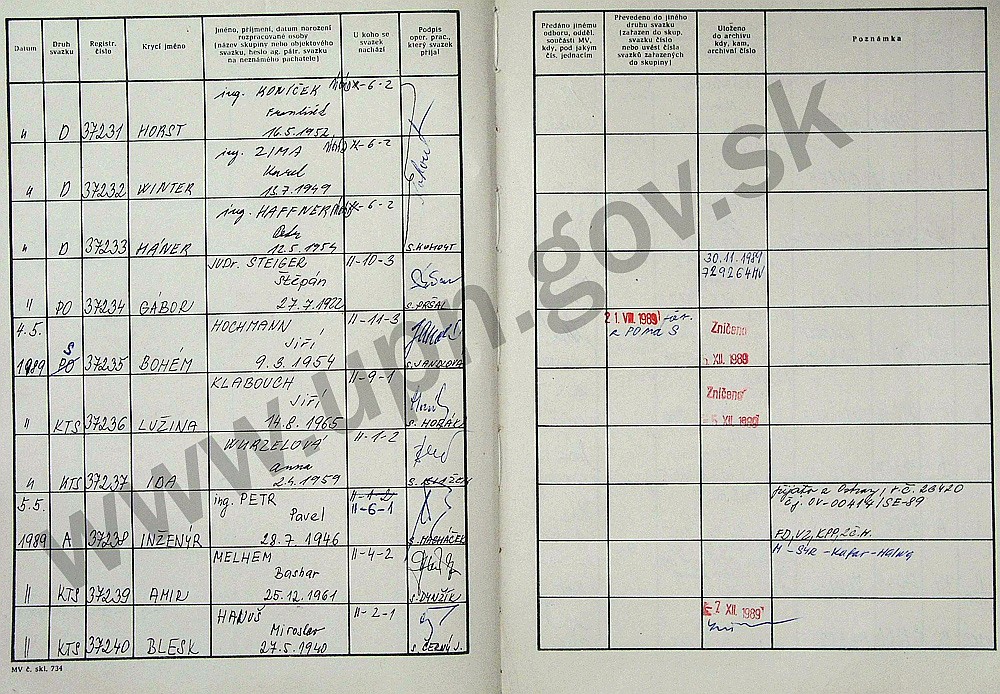 Datum
Druh svazku
Registr. číslo
Krycí jméno
Jméno, příjmení, datum narození
rozpracované osoby
(název skupiny nebo objektového
svazku, heslo ag. pátr. svazku
na neznámého pachatele)
U koho se
svazek
nachází
Podpis
oper. prac.,
který svazek
přijal
Předáno jinému
odboru, odděl.
součásti MV,
kdy, pod jakým
čís. jednacím
Převedeno do jiného
druhu svazku
(zařazen do skup.
svazku číslo
nebo uvést čísla
svazků zařazených
do skupiny)
Uloženo
do archivu
kdy, kam,
archivní číslo
Poznámka
ing. KONÍČEK
František
" D 37231 HORST 16.5.1952 X-6-2
ing. ZIMA
Karel
" D 37232 WINTER 15.7.1949 X-6-2
ing. HAFFNER
" D 37233 HÁNER 12.5.1954 X-6-2 S. KOHOUT
JUDr. STEIGER II-10-3 30.11.1989
Štěpán
" PO 37234 GÁBOR 27.7.1922
4.5. HOCHMANN II-11-3 21. VIII. 1989
Jiří z PO na S Zničeno
1989 PO S 37235 BOHEM 9.3.1954 S. JANDLOVÁ XII. 1989
KLABOUCH II-9-1 Zničeno
Jiří
" KTS 37236 LUŽINA 14.8.1965 S. HORÁK XII. 1989
WURZELOVÁ II-1-2
Anna
" KTS 37237 IDA 2.4.1959
5.5. ing. PETR II-1-2 přijato z Ostravy, r.č. 23420
Pavel II-6-1 čj. OV-00414/SE-89
1989 A 37238 INŽENÝR 28.7.1946 S. MACHÁČEK FD, VZ, KPP, ZČ.H.
MELHEM II-4-2
Bashar
" KTS 37239 AMIR 25.12.1961
HANUŠ II-2-1 7. XII. 1989
Miroslav
" KTS 37240 BLESK 27.5.1940 S. ČERNÝ J.
MV č. skl. 734
www.upn.gov.sk